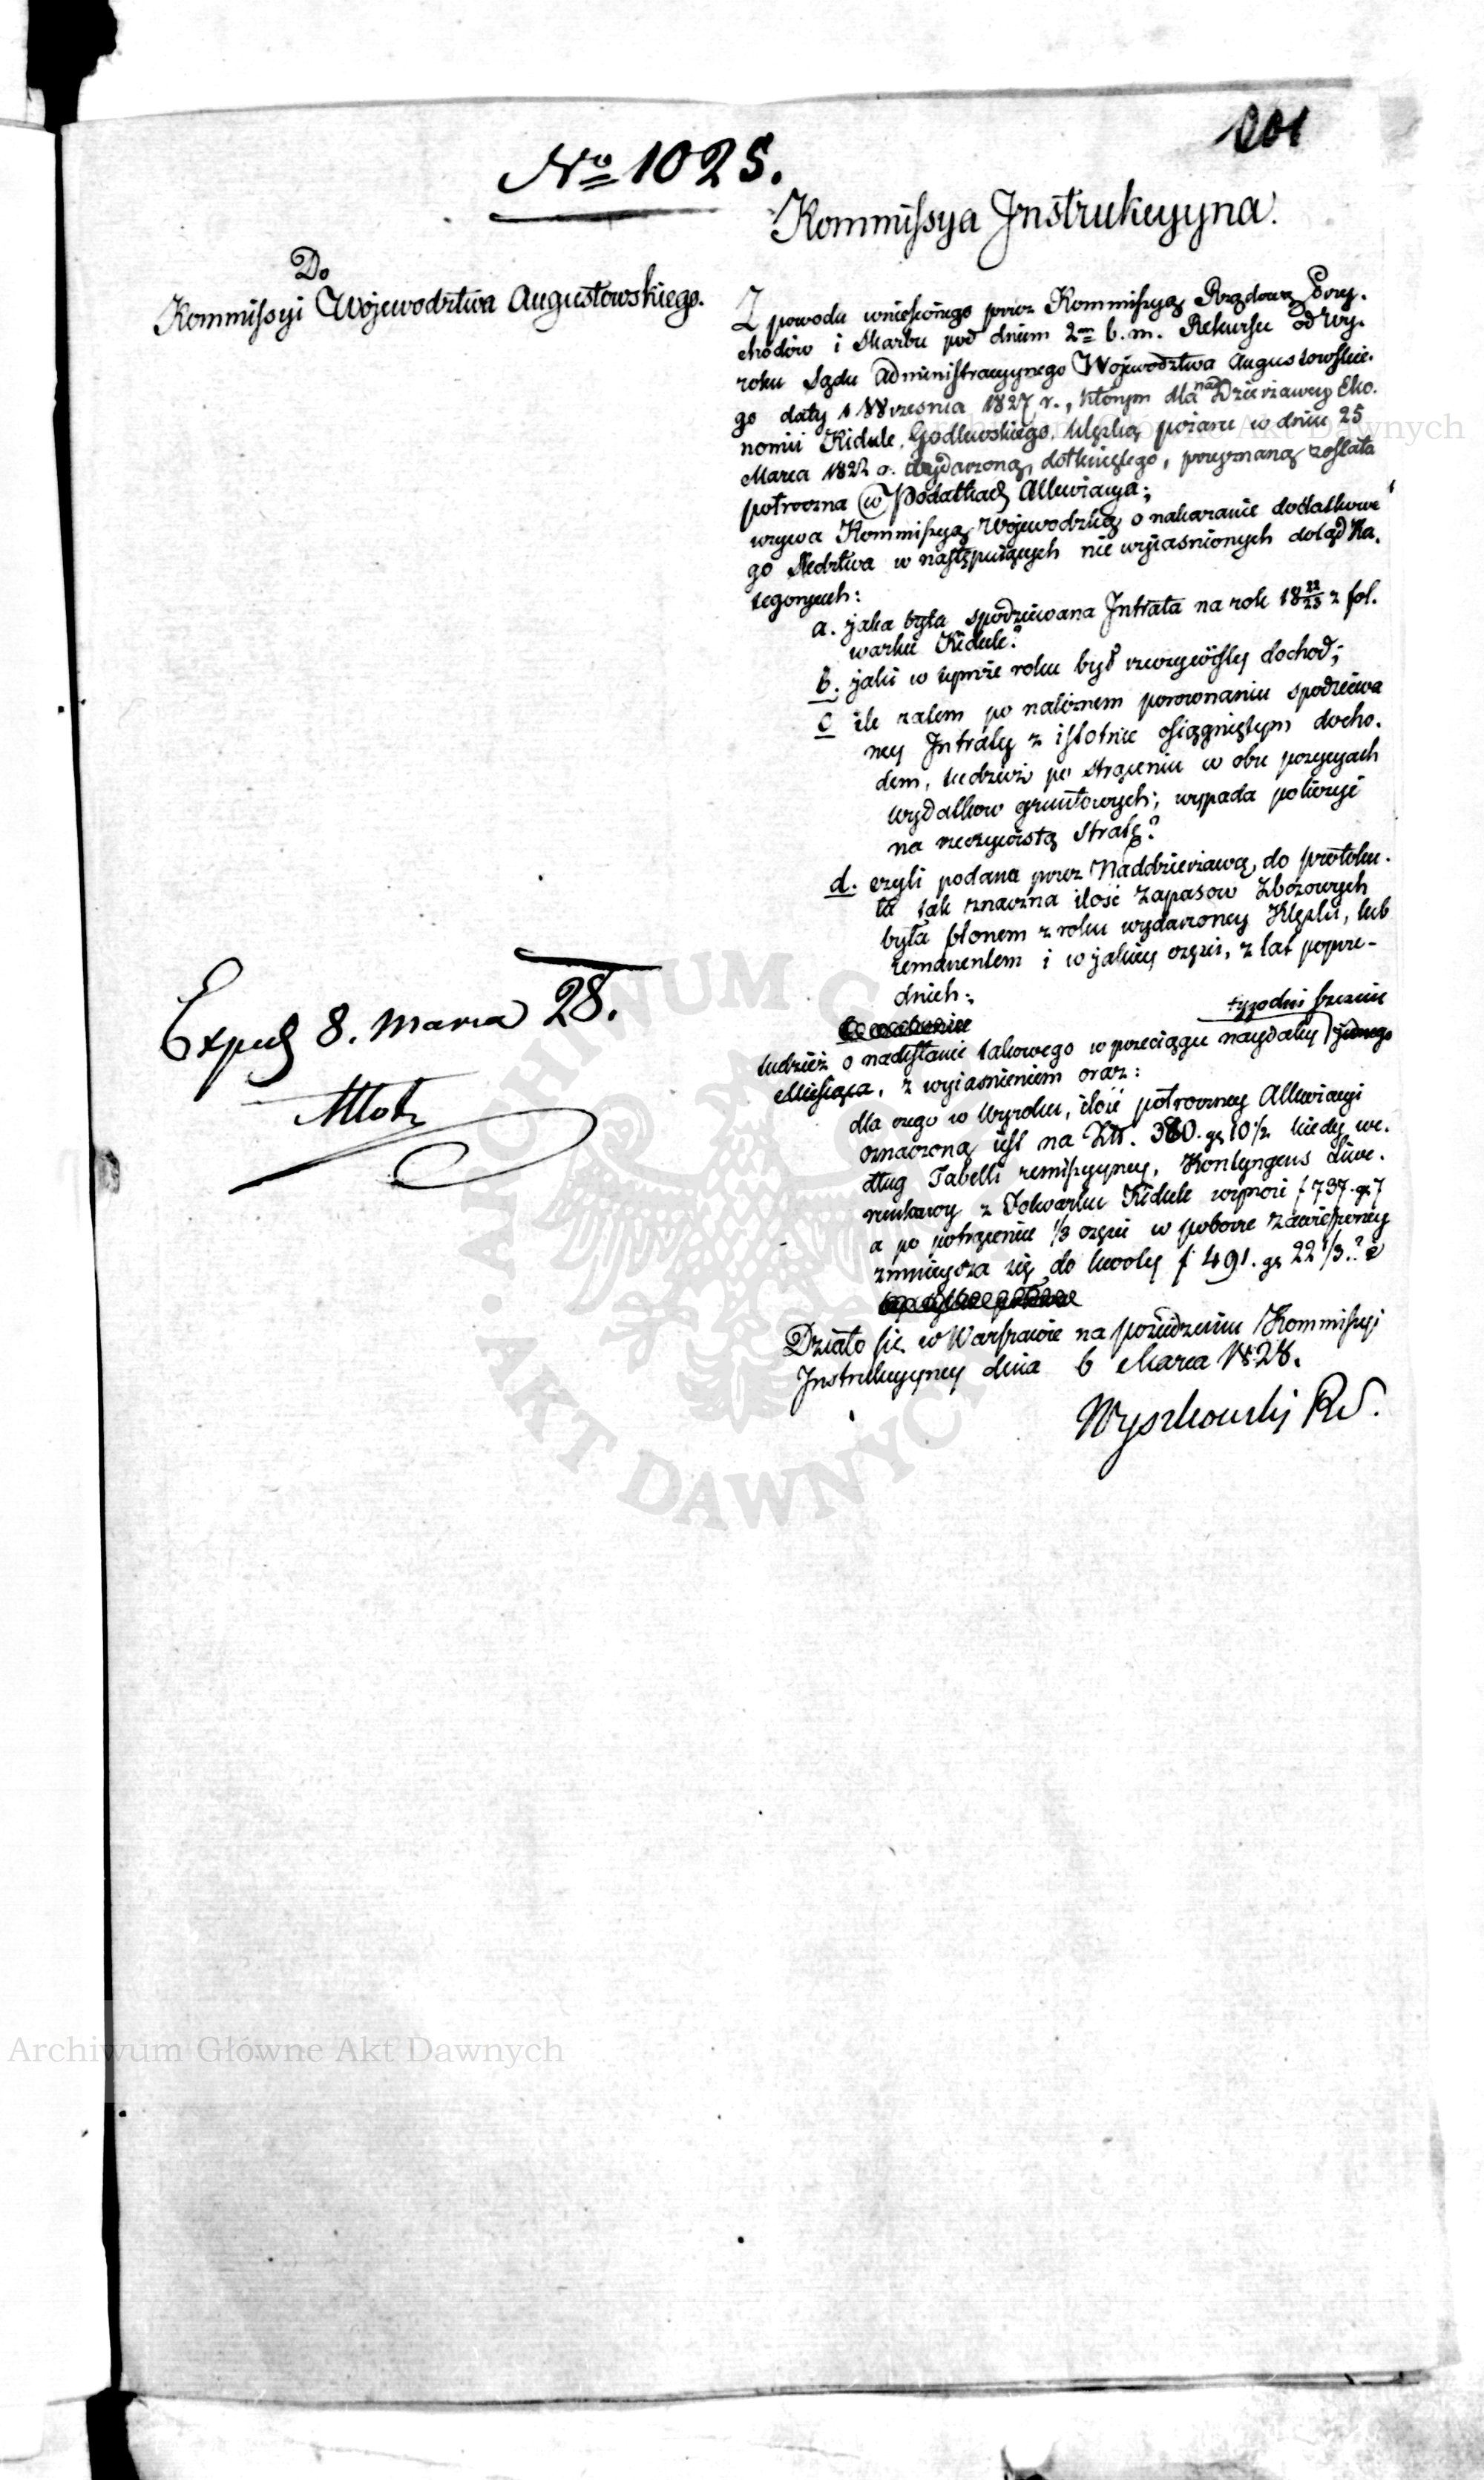 201
No 1025.
Kommissya Instrukcyyna.
Do
Kommissyi Wojewodztwa Augustowskiego.
Z powodu wniesionego przez Kommissyą Rządową Przy-
chodów i Skarbu pod dniem 2m b. m. Rekursu od Wy-
roku Sądu Administracyynego Wojewodztwa Augustowskie-
go daty 1 Września 1827 r., którym dla nad Dzierżawcy Eko-
nomii Kidule, Godlewskiego, klęską pożaru w dniu 25
Marca 1822 r. wydarzoną, dotkniętego, przyznaną została
półroczna w Podatkach Allewiacya;
wzywa Kommissyą Wojewodzką o nakazanie dodatkowe-
go Śledztwa w następujących nie wyiasnionych dotąd Ka-
tegoryach:
a. jaka była spodziewana Intrata na rok 18 22/23 z fol-
warku Kidule?
b. jaki w tymże roku był rzeczywisty dochod;
c ile zatem po należnem porównaniu spodziewa
ney Intraty z istotnie osiągniętym docho-
dem, tudzież po strąceniu w obu pozycyach
wydatkow gruntowych; wypada policzyć
na rzeczywistą stratę?
d. czyli podana przez Naddzierżawcę, do protoku-
łu tak znaczna ilość zapasow Zbożowych
była plonem z roku wydarzoney Klęski, lub
remanentem i w jakiey części, z lat poprze-
dnich;
tygodni sześciu
tudzież o nadesłanie takowego w przeciągu naydaley jednego
Miesiąca, z wyiasnieniem oraz:
dla czego w Wyroku, ilość półroczney Allewiacyi
oznaczoną iest na Złt. 380. gr 10 1/2 kiedy we-
dług Tabelli remissyyney, Kontyngens Liwe-
runkowy z Folwarku Kidule wynosi f 737. gr 7
a po potrąceniu 1/3 części w poborze zawieszoney
zmnieysza się do kwoty f 491. gr 22 1/3.?
Działo się w Warszawie na posiedzeniu Kommissyi
Instrukcyyney dnia 6 Marca 1828.
Wyszkowski RS.
Exped 8. Marca 28.
Archiwum Główne Akt Dawnych
ARCHIWUM GŁÓWNE
AKT DAWNYCH
Archiwum Główne Akt Dawnych